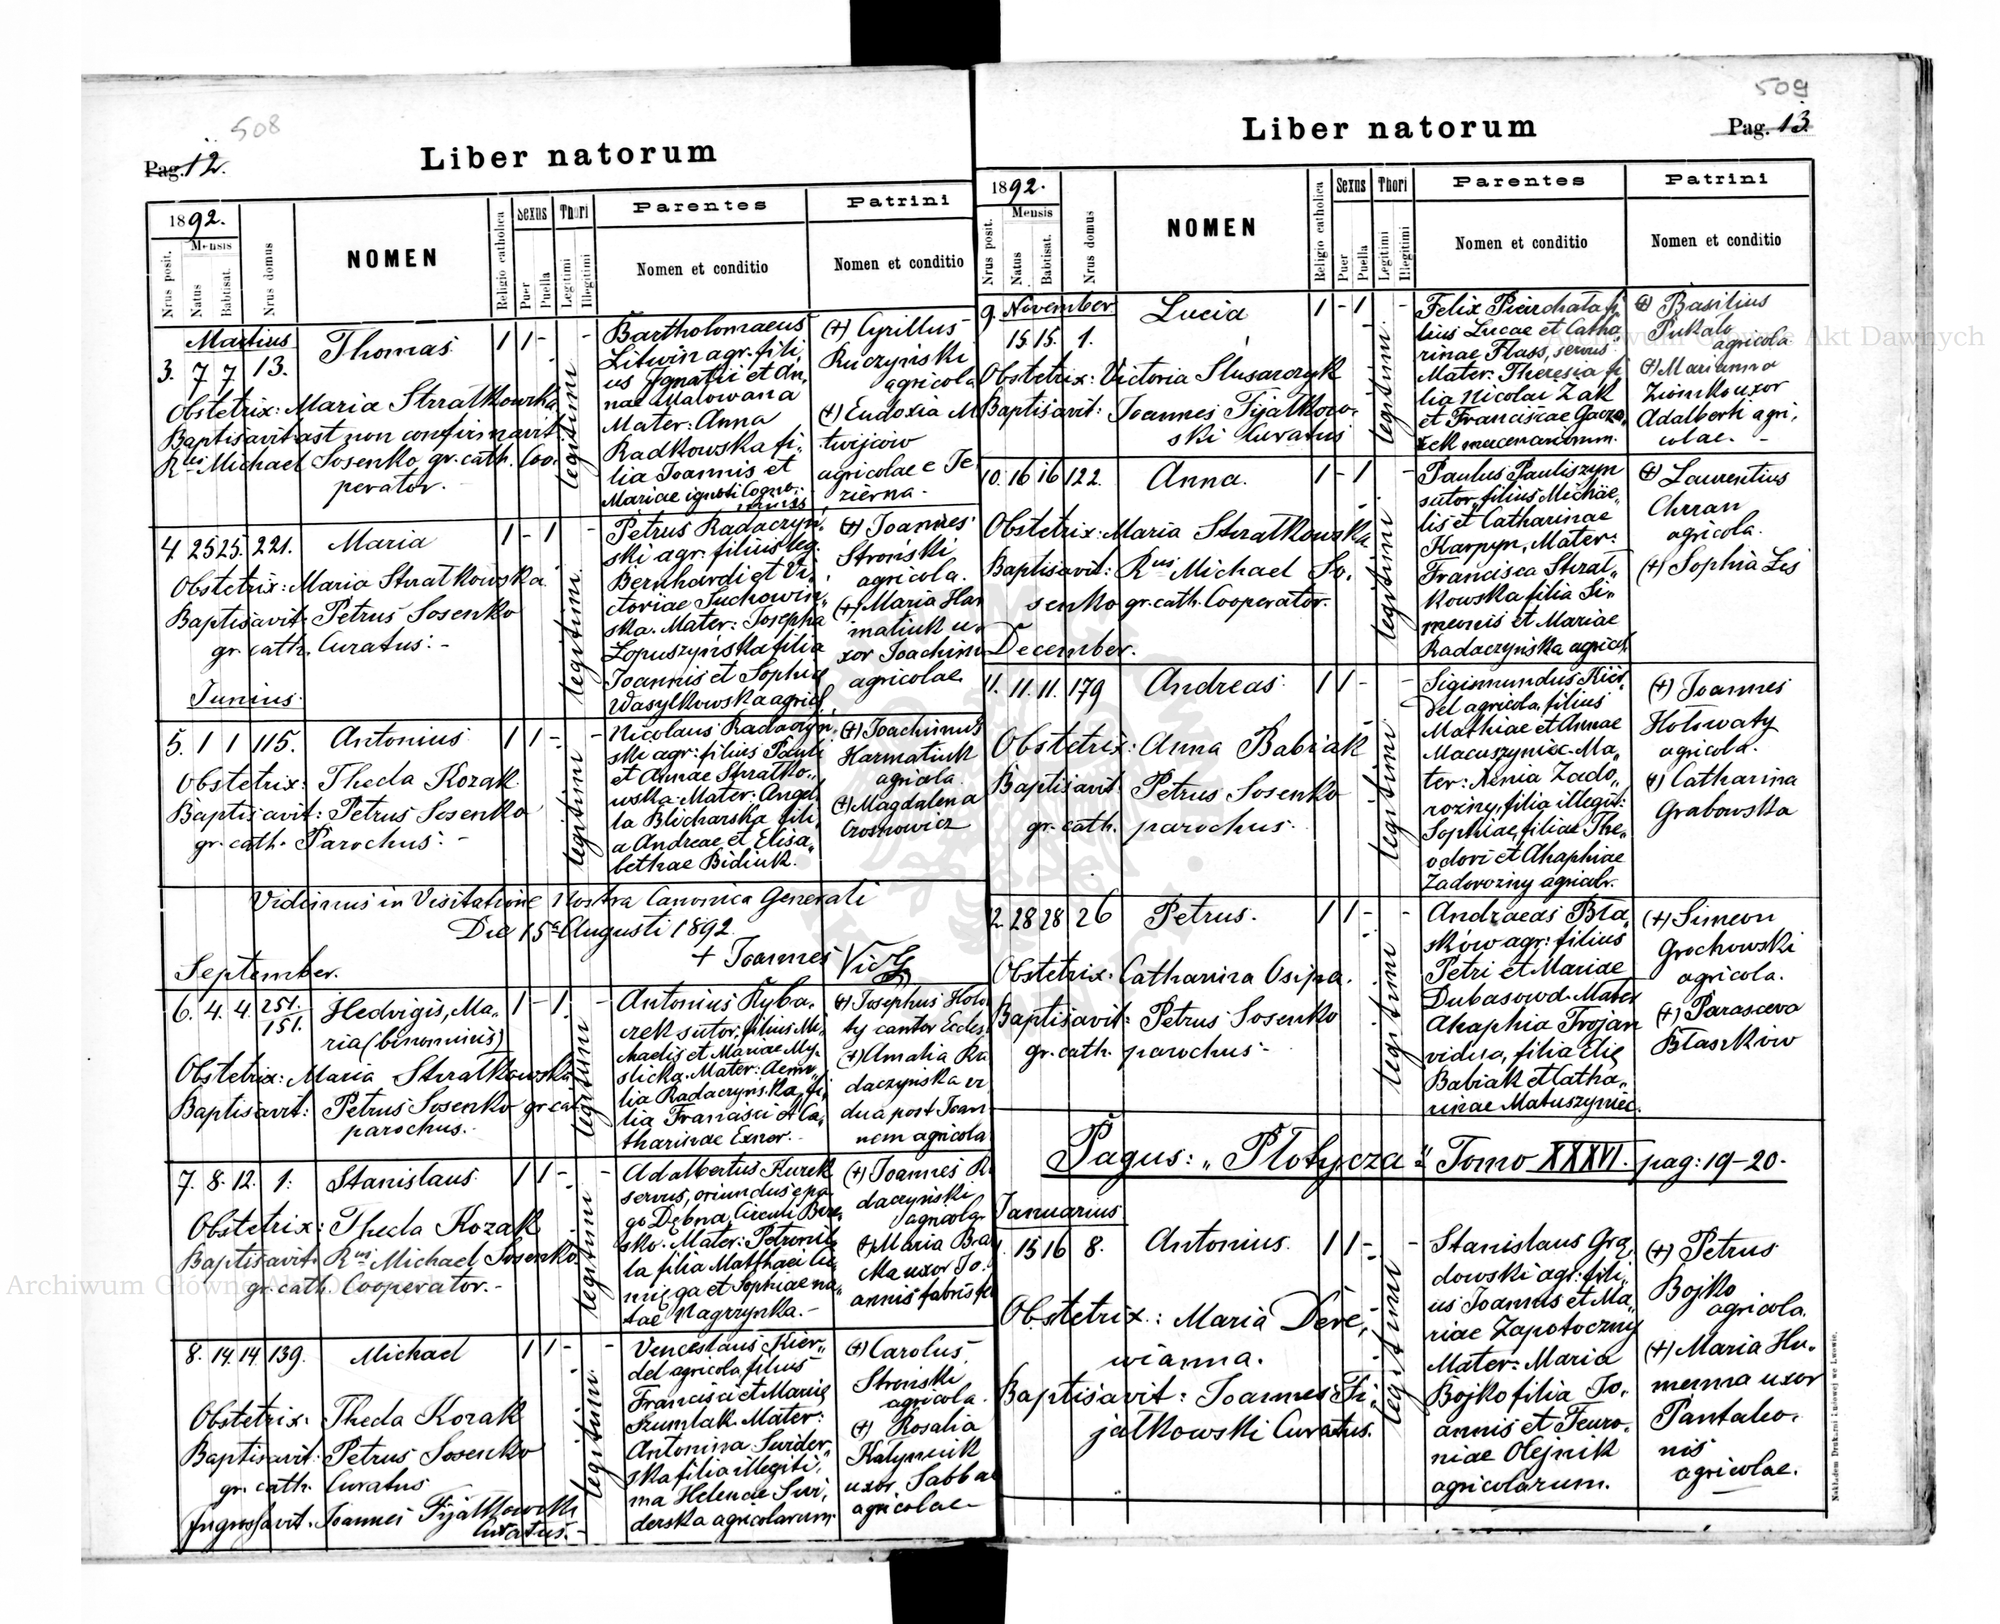 508
Pag. 12.
Liber natorum
1892.
Mensis
Nrus posit.
Natus
Babtisat.
Nrus domus
NOMEN
Religio catholica
Sexus
Puer
Puella
Thori
Legitimi
Illegitimi
Parentes
Nomen et conditio
Patrini
Nomen et conditio
Martius
3. 7 7 13. Thomas 1 1 - -
Obstetrix: Maria Stratkowska
Baptisavit ast non confirmavit
Michael Sosenko, gr. cath. Coo-
perator.
legitimi
Bartholomaeus
Litwin agr. fili,
us Ignatii et An,
nae Malowana
Mater: Anna
Radkowska fi-
lia Joannis et
Mariae ignoti Cogno-
minis
(+) Cyrillus
Ruczyński
agricola
(+) Eudoxia M
twijciw
agricolae e Je
zierna.
4 25 25. 221. Maria 1 - 1 -
Obstetrix: Maria Stratkowska
Baptisavit: Petrus Sosenko
gr. cath. Curatus: -
legitimi
Petrus Radaczyń-
ski agr. filius leg.
Bernhardi et Vi,
ctoriae Suchowin,
ska. Mater: Josepha
Łopuszyńska filia
Joannis et Sophiae
Wasylkowska agricol.
(+) Joannes
Stroński
agricola.
(+) Maria Har
matiuk u-
xor Joachimi
agricolae
Junius:
5. 1 1 115. Antonius 1 1 - -
Obstetrix: Theda Kozak
Baptisavit: Petrus Sosenko
gr. cath. Parochus: -
legitimi
Nicolaus Radaczyń
ski agr: filius Pauli
et Annae Stratko,,
wska. Mater: Angel
la Blicharska fili,
a Andreae et Elisa,
bethae Bidiuk.
(+) Joachimus
Harmatiuk
agricola
(+) Magdalena
Crosnowicz
Vidimus in Visitatione Nostra Canonica Generali
Die 15ª Augusti 1892.
+ Joannes
September.
6. 4. 4. 251. Hedvigis, Ma, 1 - 1. -
151. ria (binominis)
Obstetrix: Maria Stratkowska
Baptisavit: Petrus Sosenko gr. cat
parochus. -
legitimi
Antonius Ryba,
czek sutor, filius Mi-
chaelis et Mariae My-
slicka. Mater: Aemi,
lia Radaczyńska, fi,
lia Francisci et Ca-
tharinae Exnor. -
(+) Josephus Holo
ty cantor Eccles
(+) Amalia Ra
daczyńska vi
dua post Joan
nem agricola
7. 8. 12. 1: Stanislaus 1 1 - -
Obstetrix: Theda Kozak
Baptisavit: Michael Sosenko
gr. cath. Cooperator. -
legitimi
Adalbertus Kurek
servus, oriundus e pa-
go Dębna, Circuli Brze-
sko. Mater: Petronil
la filia Matthaei Cu
mięga et Sophiae na-
tae Nagrzynka. -
(+) Joannes R
daczyński
agricola
(+) Maria Bra
ka uxor Jo.
annis fabris fer
8. 14. 14 139. Michael 1 1 - -
Obstetrix: Theda Kozak
Baptisavit: Petrus Sosenko
gr. cath. Curatus
Ingrossavit: Joannes Fijałkowski
Curatus. -
legitimi
Venceslaus Kier-
del agricola filius
Francisci et Mariae
Szumlak. Mater:
Antonina Swider,,
ska filia illegiti,
ma Helenae Swi,
derska agricolarum.
(+) Carolus
Stroński
agricola.
(+) Rosalia
Katyniuk
uxor Sabbae
agricolae
509
Pag. 13.
Liber natorum
1892.
Mensis
Nrus posit.
Natus
Babtisat.
Nrus domus
NOMEN
Religio catholica
Sexus
Puer
Puella
Thori
Legitimi
Illegitimi
Parentes
Nomen et conditio
Patrini
Nomen et conditio
9. November Lucia 1 - 1 -
15. 15. 1.
Obstetrix: Victoria Slusarczyk
Baptisavit: Joannes Fijałkow-
ski Curatus
legitimi
Felix Pierchata fi
lius Lucae et Catha,
rinae Flass, servus
Mater: Theresia fi
lia Nicolai Żak
et Franciscae Gacza,
szek mercenariorum.
(+) Basilius
Pukalo
agricola
(+) Marianna
Ziomko uxor
Adalberti agri,
colae. -
10. 16 16 122. Anna. 1 - 1 -
Obstetrix: Maria Stratkowska
Baptisavit: Michael So,
senko gr. cath. Cooperator.
legitimi
Paulus Pauliszyn
sutor, filius Michae,,
lis et Catharinae
Karpyn, Mater:
Francisca Strat,,
kowska filia Si,,
meonis et Mariae
Radaczyńska agricol.
(+) Laurentius
Chrzan
agricola.
(+) Sophia Lis
December.
11. 11. 11. 179 Andreas 1 1 - -
Obstetrix: Anna Babiak
Baptisavit: Petrus Sosenko
gr. cath. parochus.
legitimi
Sigismundus Kier,
del agricola, filius
Mathiae et Annae
Macuszyniec. Ma,
ter: Xenia Zado,
rozny, filia illegit:
Sophiae, filiae The,,
odori et Ahaphiae
Zadorozny agricolr.
(+) Joannes
Hołowaty
agricola.
(+) Catharina
Grabowska
12. 28 28 26 Petrus. 1 1 - -
Obstetrix: Catharina Osipa.
Baptisavit: Petrus Sosenko
gr. cath. parochus -
legitimi
Andraeas Bła-
sków agr: filius
Petri et Mariae
Dubasowd. Mater
Ahaphia Trojan
vidua, filia Elię
Babiak et Catha,,
rinae Matuszyniec.
(+) Simeon
Grochowski
agricola.
(+) Parasceva
Błaszków
Pagus: „Płotycza" Tomo XXXVI. pag: 19-20.
Januarius
1. 15 16 8. Antonius. 1 1 - -
Obstetrix: Maria Dere,
wianna.
Baptisavit: Joannes Fi,
jałkowski Curatus.
legitimi
Stanislaus Gra,
dowski agr: fili,,
us Joannis et Ma,
riae Zapotoczny
Mater: Maria
Bojko filia Jo,
annis et Feuro,
niae Olejnik
agricolarum.
(+) Petrus
Bojko
agricola.
(+) Maria Hu,
menna uxor
Pantaleo,
nis
agricolae.
Nakładem Drukarni Ludowej we Lwowie.
Archiwum Główne Akt Dawnych
Archiwum Główne Akt Dawnych